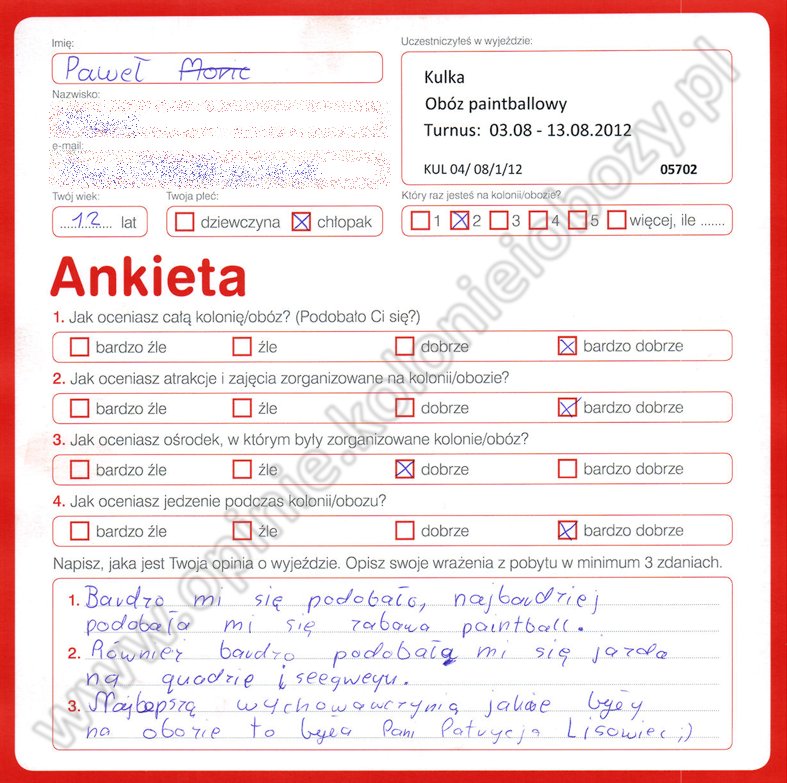 Imię:
Paweł
Uczestniczyłeś w wyjeździe:
Kulka
Obóz paintballowy
Turnus: 03.08 - 13.08.2012
KUL 04/ 08/1/12 05702
Nazwisko:
e-mail:
Twój wiek:
12 lat
Twoja płeć:
dziewczyna chłopak
Który raz jesteś na kolonii/obozie?
1 2 3 4 5 więcej, ile .......
Ankieta
1. Jak oceniasz całą kolonię/obóz? (Podobało Ci się?)
bardzo źle źle dobrze bardzo dobrze
2. Jak oceniasz atrakcje i zajęcia zorganizowane na kolonii/obozie?
bardzo źle źle dobrze bardzo dobrze
3. Jak oceniasz ośrodek, w którym były zorganizowane kolonie/obóz?
bardzo źle źle dobrze bardzo dobrze
4. Jak oceniasz jedzenie podczas kolonii/obozu?
bardzo źle źle dobrze bardzo dobrze
Napisz, jaka jest Twoja opinia o wyjeździe. Opisz swoje wrażenia z pobytu w minimum 3 zdaniach.
1. Bardzo mi się podobało, najbardziej
podobała mi się zabawa paintball.
2. Również bardzo podobała mi się jazda
na quadzie i seegweyu.
3. Najlepszą wychowawczynią jakie były
na obozie to była Pani Patrycja Lisowiec ;)
www.opinie.kolonieiobozy.pl